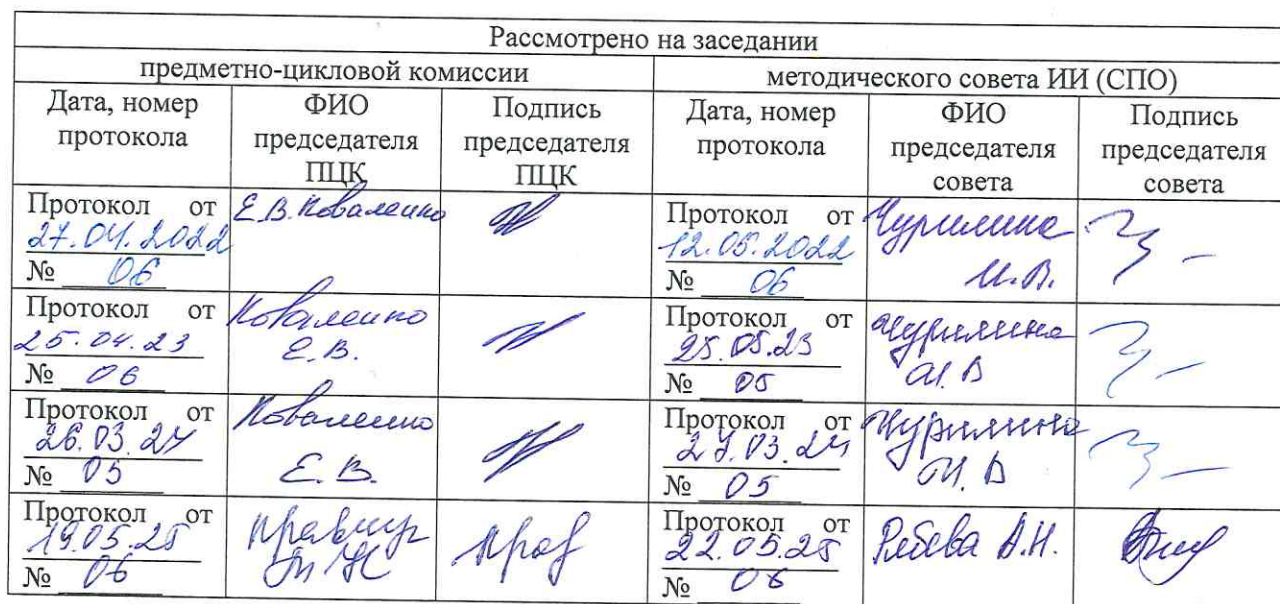 Рассмотрено на заседании
предметно-цикловой комиссии
методического совета ИИ (СПО)
Дата, номер
протокола
ФИО
председателя
ПЦК
Подпись
председателя
ПЦК
Дата, номер
протокола
ФИО
председателя
совета
Подпись
председателя
совета
Протокол от
27.04.2022
№ 06
Е.В. Коваленко
Протокол от
12.05.2022
№ 06
Чурилина
И.В.
Протокол от
25.04.23
№ 06
Коваленко
Е.В.
Протокол от
25.05.23
№ 05
Чурилина
И.В
Протокол от
26.03.24
№ 05
Коваленко
Е.В.
Протокол от
27.03.24
№ 05
Чурилина
И.В
Протокол от
19.05.25
№ 06
Протокол от
22.05.25
№ 06
А.Н.